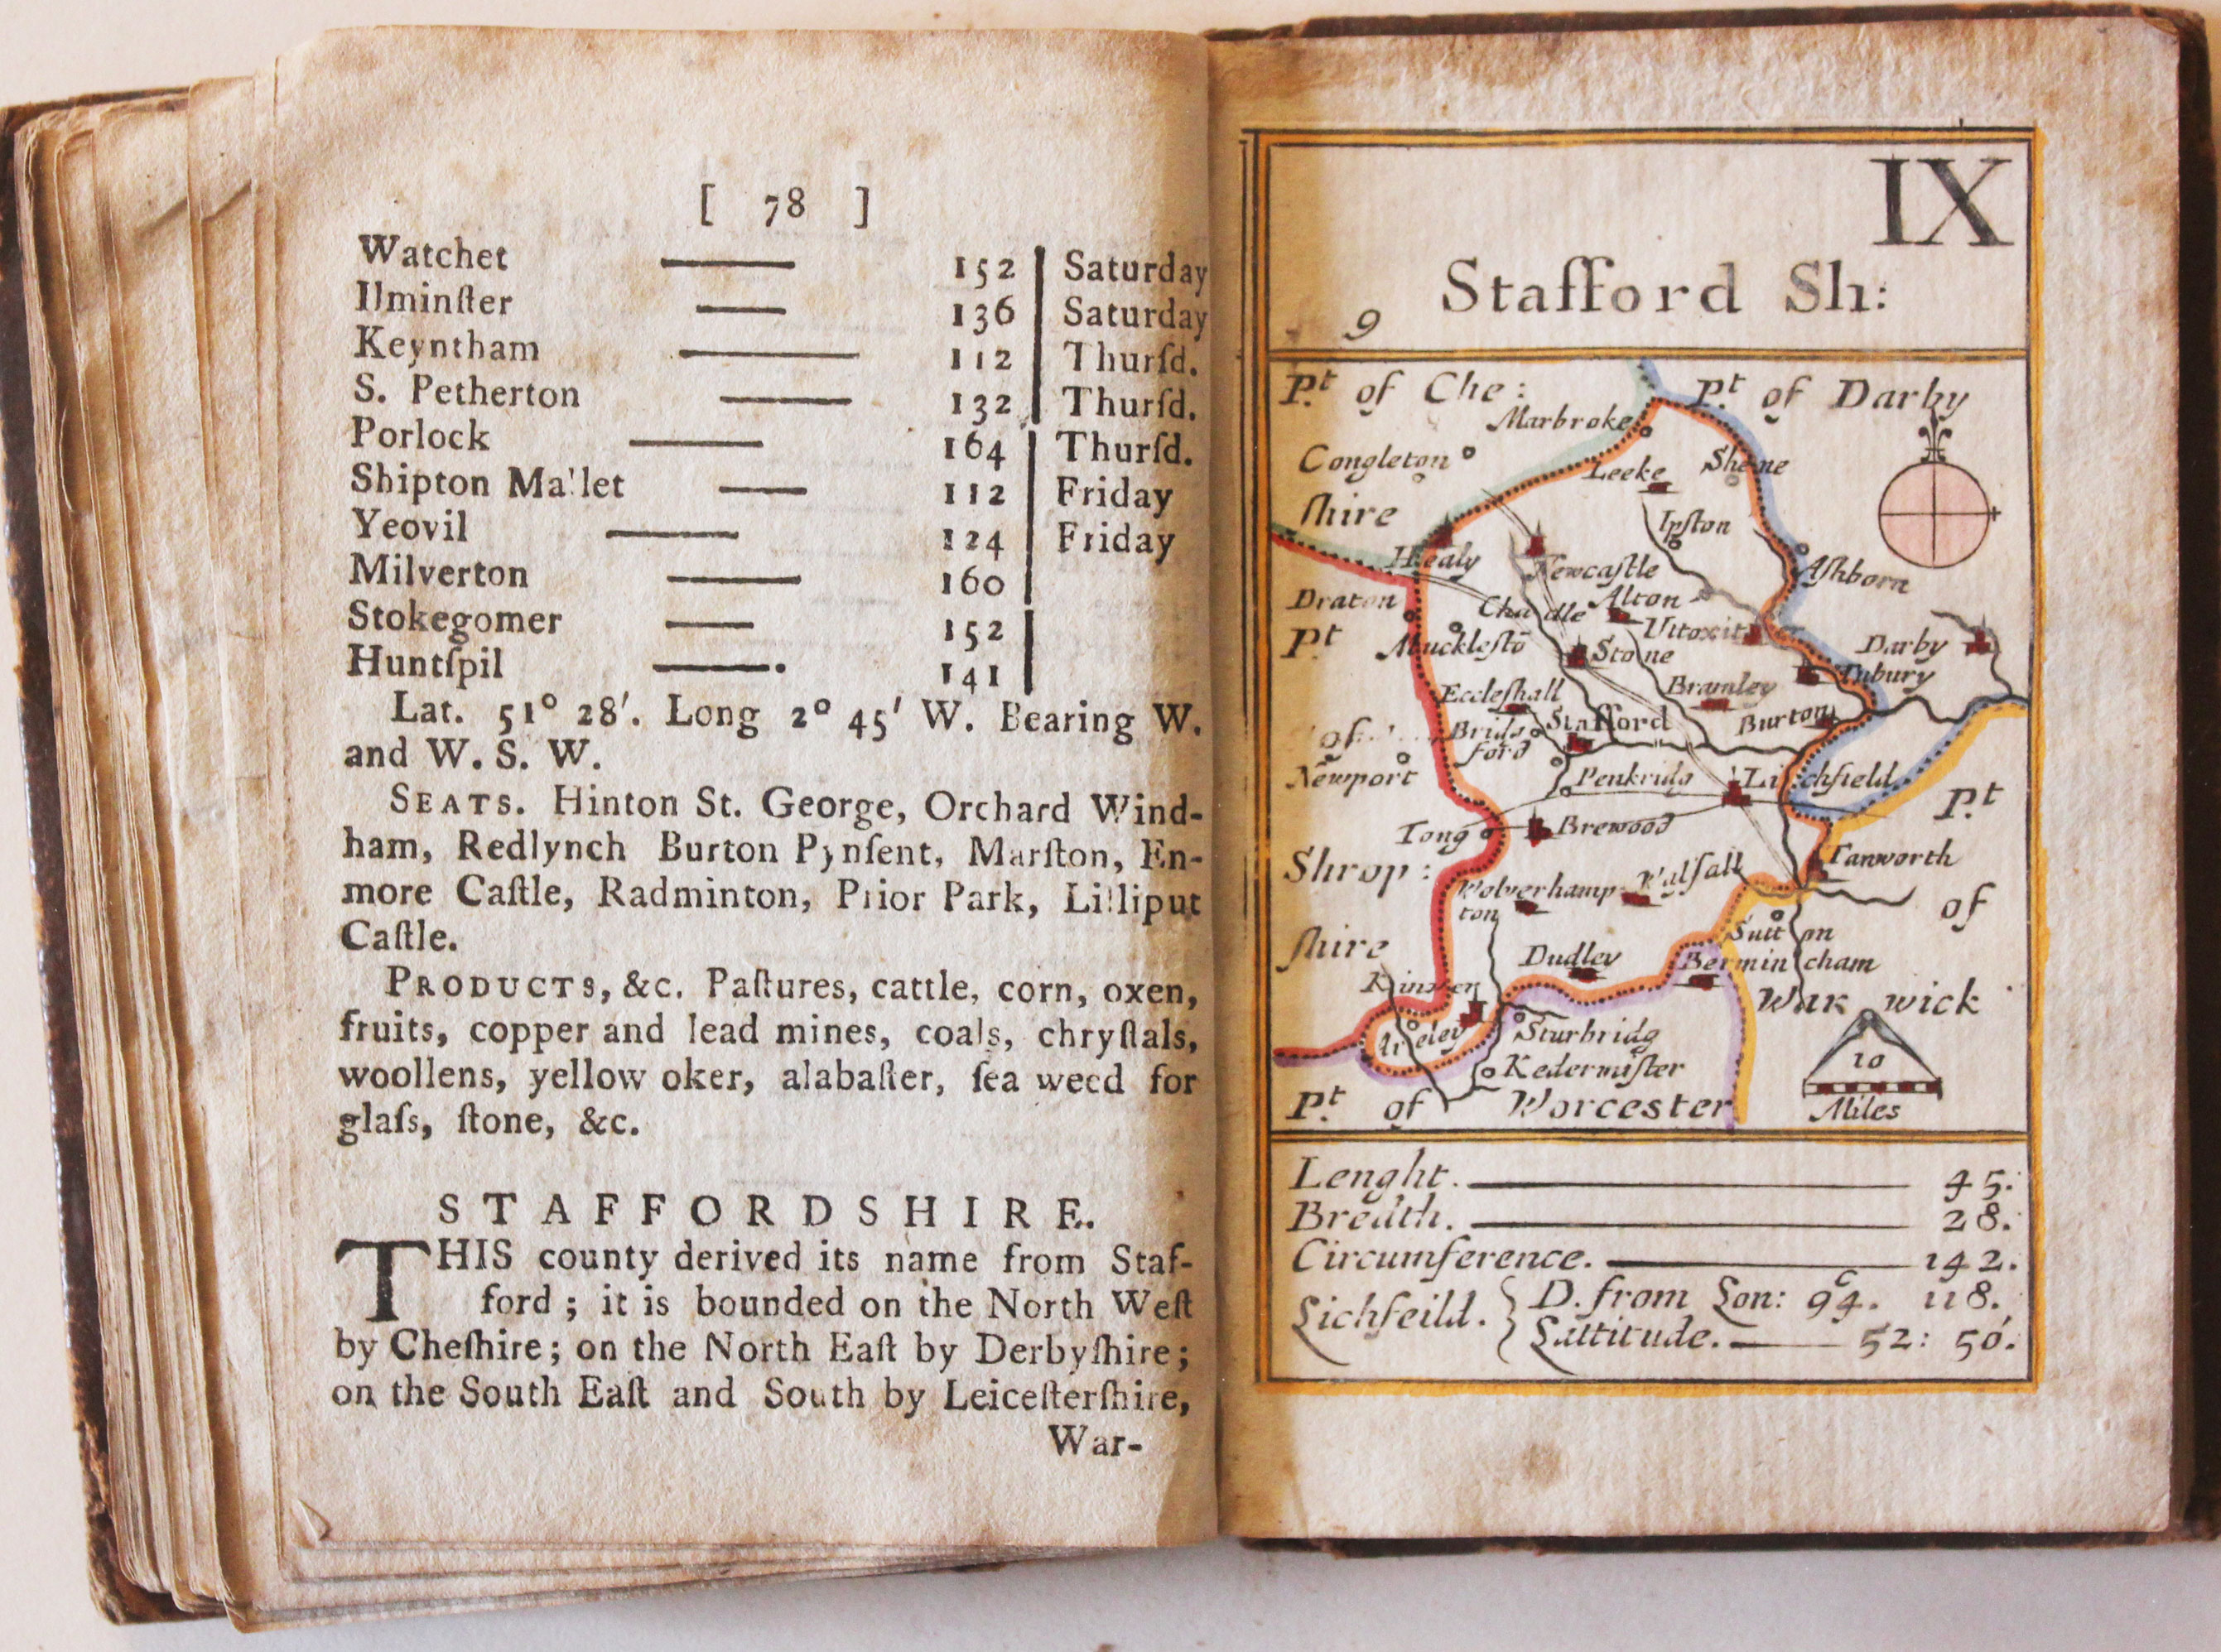 [ 78 ]
Watchet —— 152 | Saturday
Ilminſter —— 136 | Saturday
Keyntham —— 112 | Thurſd.
S. Petherton —— 132 | Thurſd.
Porlock —— 164 | Thurſd.
Shipton Mallet —— 112 | Friday
Yeovil —— 124 | Friday
Milverton —— 160 |
Stokegomer —— 152 |
Huntſpil ——. 141 |
Lat. 51° 28′. Long 2° 45′ W. Bearing W.
and W. S. W.
SEATS. Hinton St. George, Orchard Wind-
ham, Redlynch Burton Pynſent, Marſton, En-
more Caſtle, Radminton, Prior Park, Lilliput
Caſtle.
PRODUCTS, &c. Paſtures, cattle, corn, oxen,
fruits, copper and lead mines, coals, chryſtals,
woollens, yellow oker, alabaſter, ſea weed for
glaſs, ſtone, &c.
STAFFORDSHIRE.
THIS county derived its name from Staf-
ford; it is bounded on the North Weſt
by Cheſhire; on the North Eaſt by Derbyſhire;
on the South Eaſt and South by Leiceſterſhire,
War-
IX
Stafford Sh:
9
Pt of Che:
Pt of Darby
Marbroke
Congleton
Leeke
Shene
ſhire
Ipſton
Healy
Newcaſtle
Aſhborn
Draton
Chadle
Alton
Pt
Muckleſtō
Stone
Utoxit
Darby
Tutbury
Eccleſhall
Bramley
of
Bridgford
Stafford
Burton
Newport
Penkridg
Litchfield
Pt
Tong
Brewood
Shrop:
Tanworth
Wolverhampton
Walſall
of
ſhire
Sutton
Dudley
Bermincham
Kinver
Warwick
Areley
Sturbridg
10
Kedermiſter
Miles
Pt of Worcester
Lenght. —— 45.
Bredth. —— 28.
Circumference. —— 142.
Lichfeild. } D. from Lon: 94. C 118.
Lattitude. —— 52: 50′.